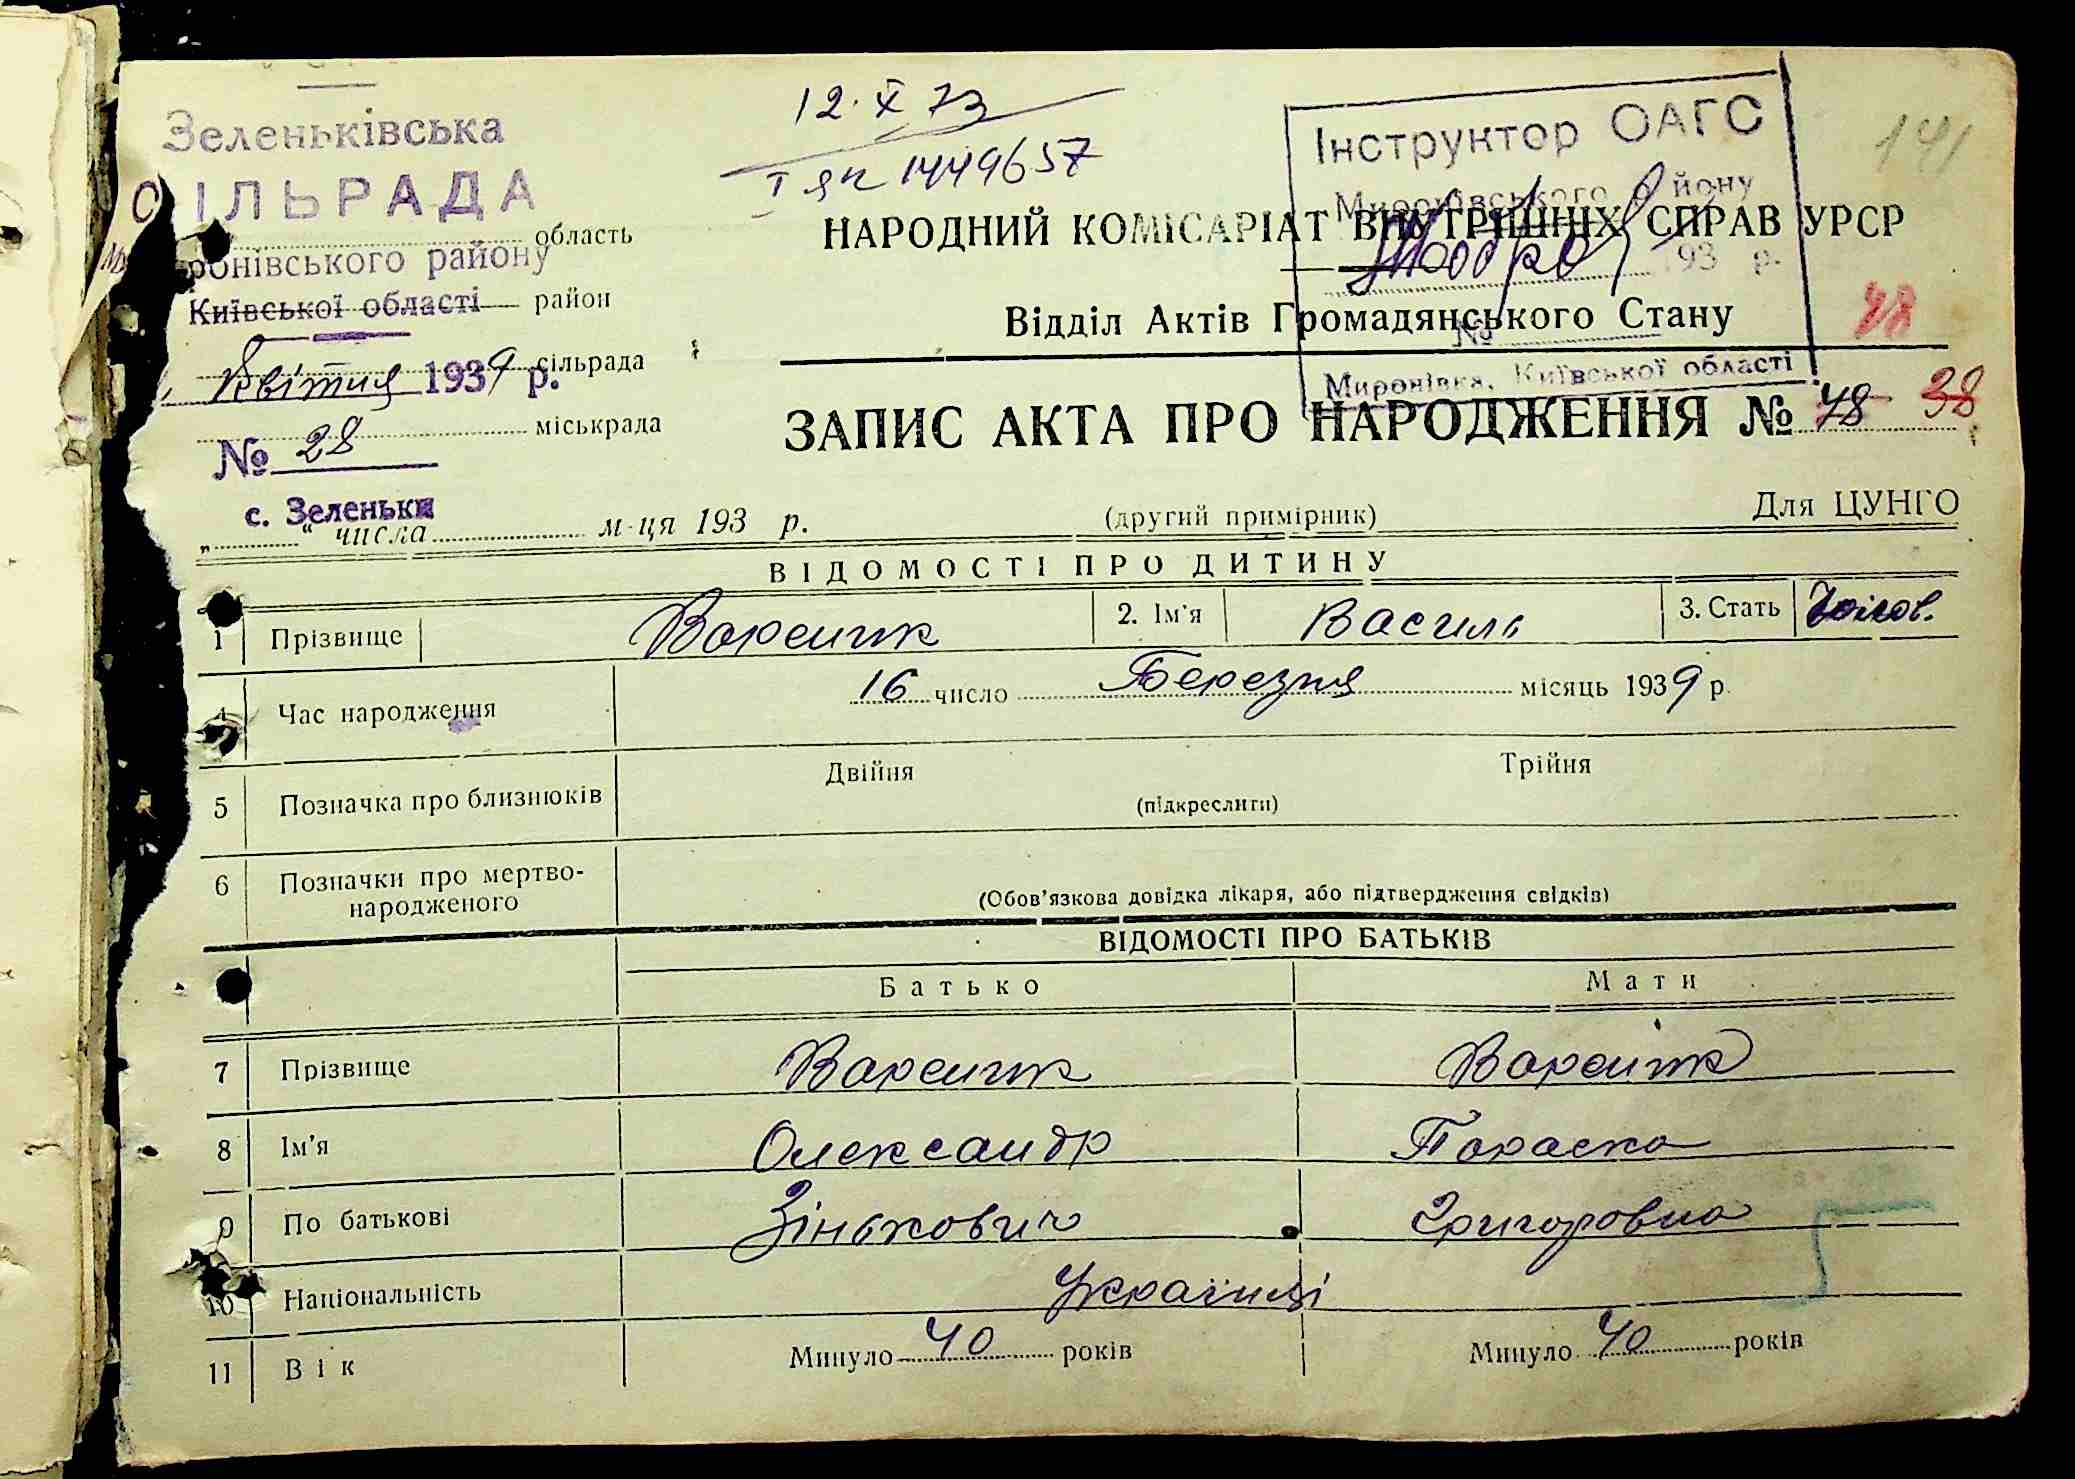 12. X 73
І ЯК 1449657
141
Зеленьківська
СІЛЬРАДА
область
Миронівського району
Київської області район
Квітня 1939 р. сільрада
міськрада
№ 28
с. Зеленьки
„ “ числа м-ця 193 р.
Інструктор ОАГС
Миронівського району
193 р.
№
Миронівка, Київської області
НАРОДНИЙ КОМІСАРІАТ ВНУТРІШНІХ СПРАВ УРСР
Відділ Актів Громадянського Стану
48
ЗАПИС АКТА ПРО НАРОДЖЕННЯ № 48 38
(другий примірник)
Для ЦУНГО
ВІДОМОСТІ ПРО ДИТИНУ
1 Прізвище Вареник 2. Ім'я Василь 3. Стать Чолов.
4 Час народження 16 число Березня місяць 1939 р.
5 Позначка про близнюків Двійня Трійня
(підкреслити)
6 Позначки про мертво-
народженого
(Обов'язкова довідка лікаря, або підтвердження свідків)
ВІДОМОСТІ ПРО БАТЬКІВ
Батько Мати
7 Прізвище Вареник Вареник
8 Ім'я Олександр Параска
9 По батькові Зінькович Григоровна
10 Національність Українці
11 Вік Минуло 40 років Минуло 40 років